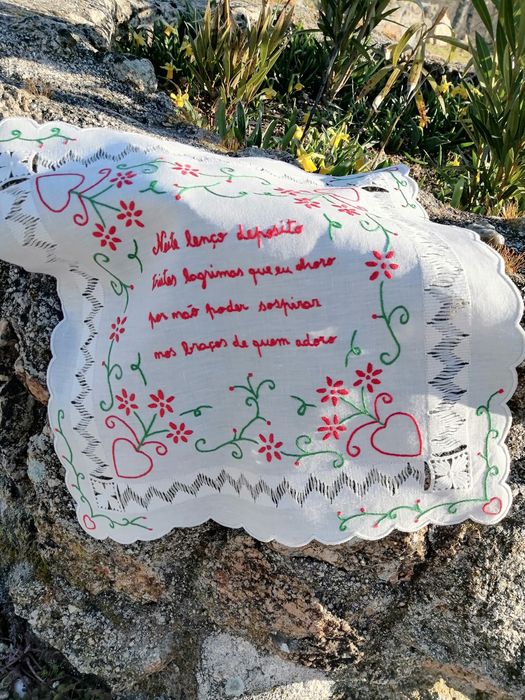 Neste lenço deposito
tristes lagrimas que eu choro
por não poder sospirar
nos braços de quem adoro